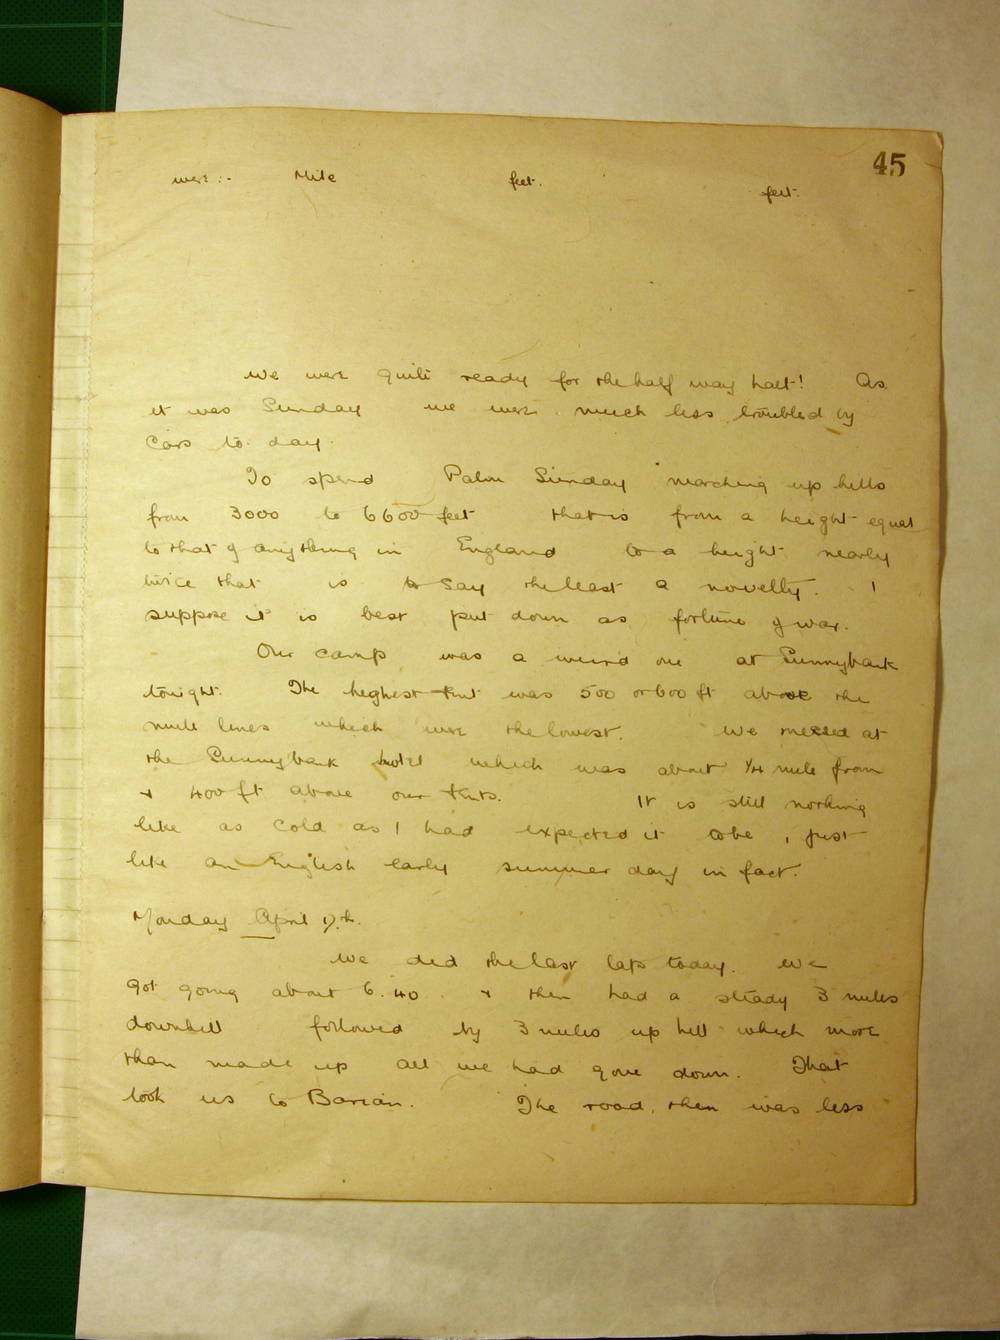 45
were :- Mile feet. feet.
We were quite ready for the half way halt! As
it was Sunday we were much less troubled by
cars to day.
To spend Palm Sunday marching up hills
from 3000 to 6600 feet that is from a height equal
to that of anything in England to a height nearly
twice that is to say the least a novelty. I
suppose it is best put down as fortune of war.
Our camp was a weird one at Sunnybank
tonight. The heghest tent was 500 or 600 ft above the
mule lines which were the lowest. We messed at
the Sunnybank hotel which was about 1/4 mile from
& 400 ft above our tents. It is still nothing
like as cold as I had expected it to be, just
like an English early summer day in fact.
Monday April 17th.
We did the last laps today. We
got going about 6.40 & then had a steady 3 miles
downhill followed by 3 miles up hill which more
than made up all we had gone down. That
took us to Barian. The road, then was less